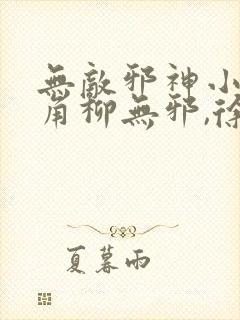 無敵邪神小
角柳無邪,徐
夏暮雨